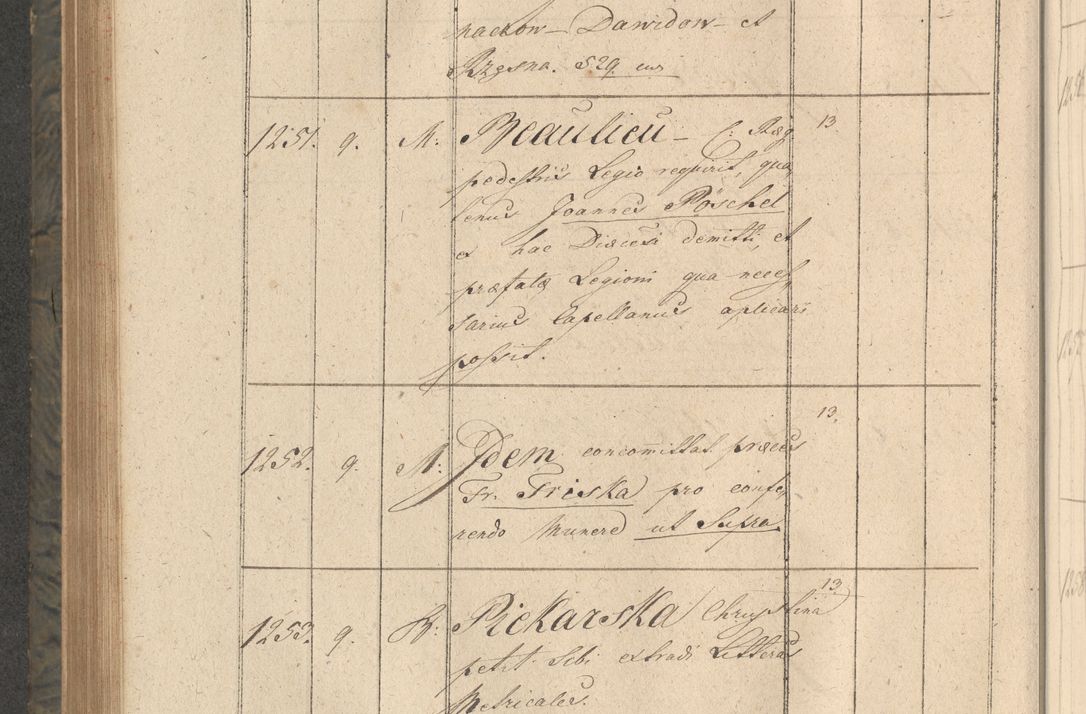 naczow – Dawidow – et
Rzęsna. 529. eus
1251. 9. M: Beaulieu – C: Reg 13.
pedestris Legio requirit, qua
tenus Joannes Pöschel
ex hac Diæcesi demitti, et
præfatæ Legioni qua neces
sarius Capellanus aplicari
possit.
13.
1252. 9. M: Idem concomittat præces
Fr. Friska pro confe
rendo Munere ut Supra
13
1253. 9. R: Piekarska Chrystina
petit sibi extradi Litteras
Metricales.